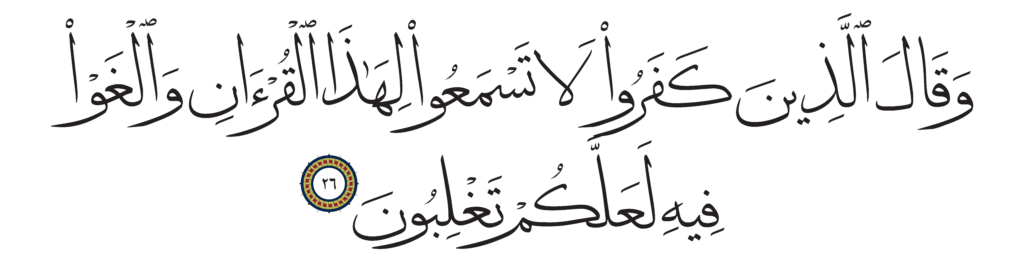 وَقَالَ ٱلَّذِينَ كَفَرُواْ لَا تَسْمَعُواْ لِهَٰذَا ٱلْقُرْءَانِ وَٱلْغَوْاْ
فِيهِ لَعَلَّكُمْ تَغْلِبُونَ ٢٦